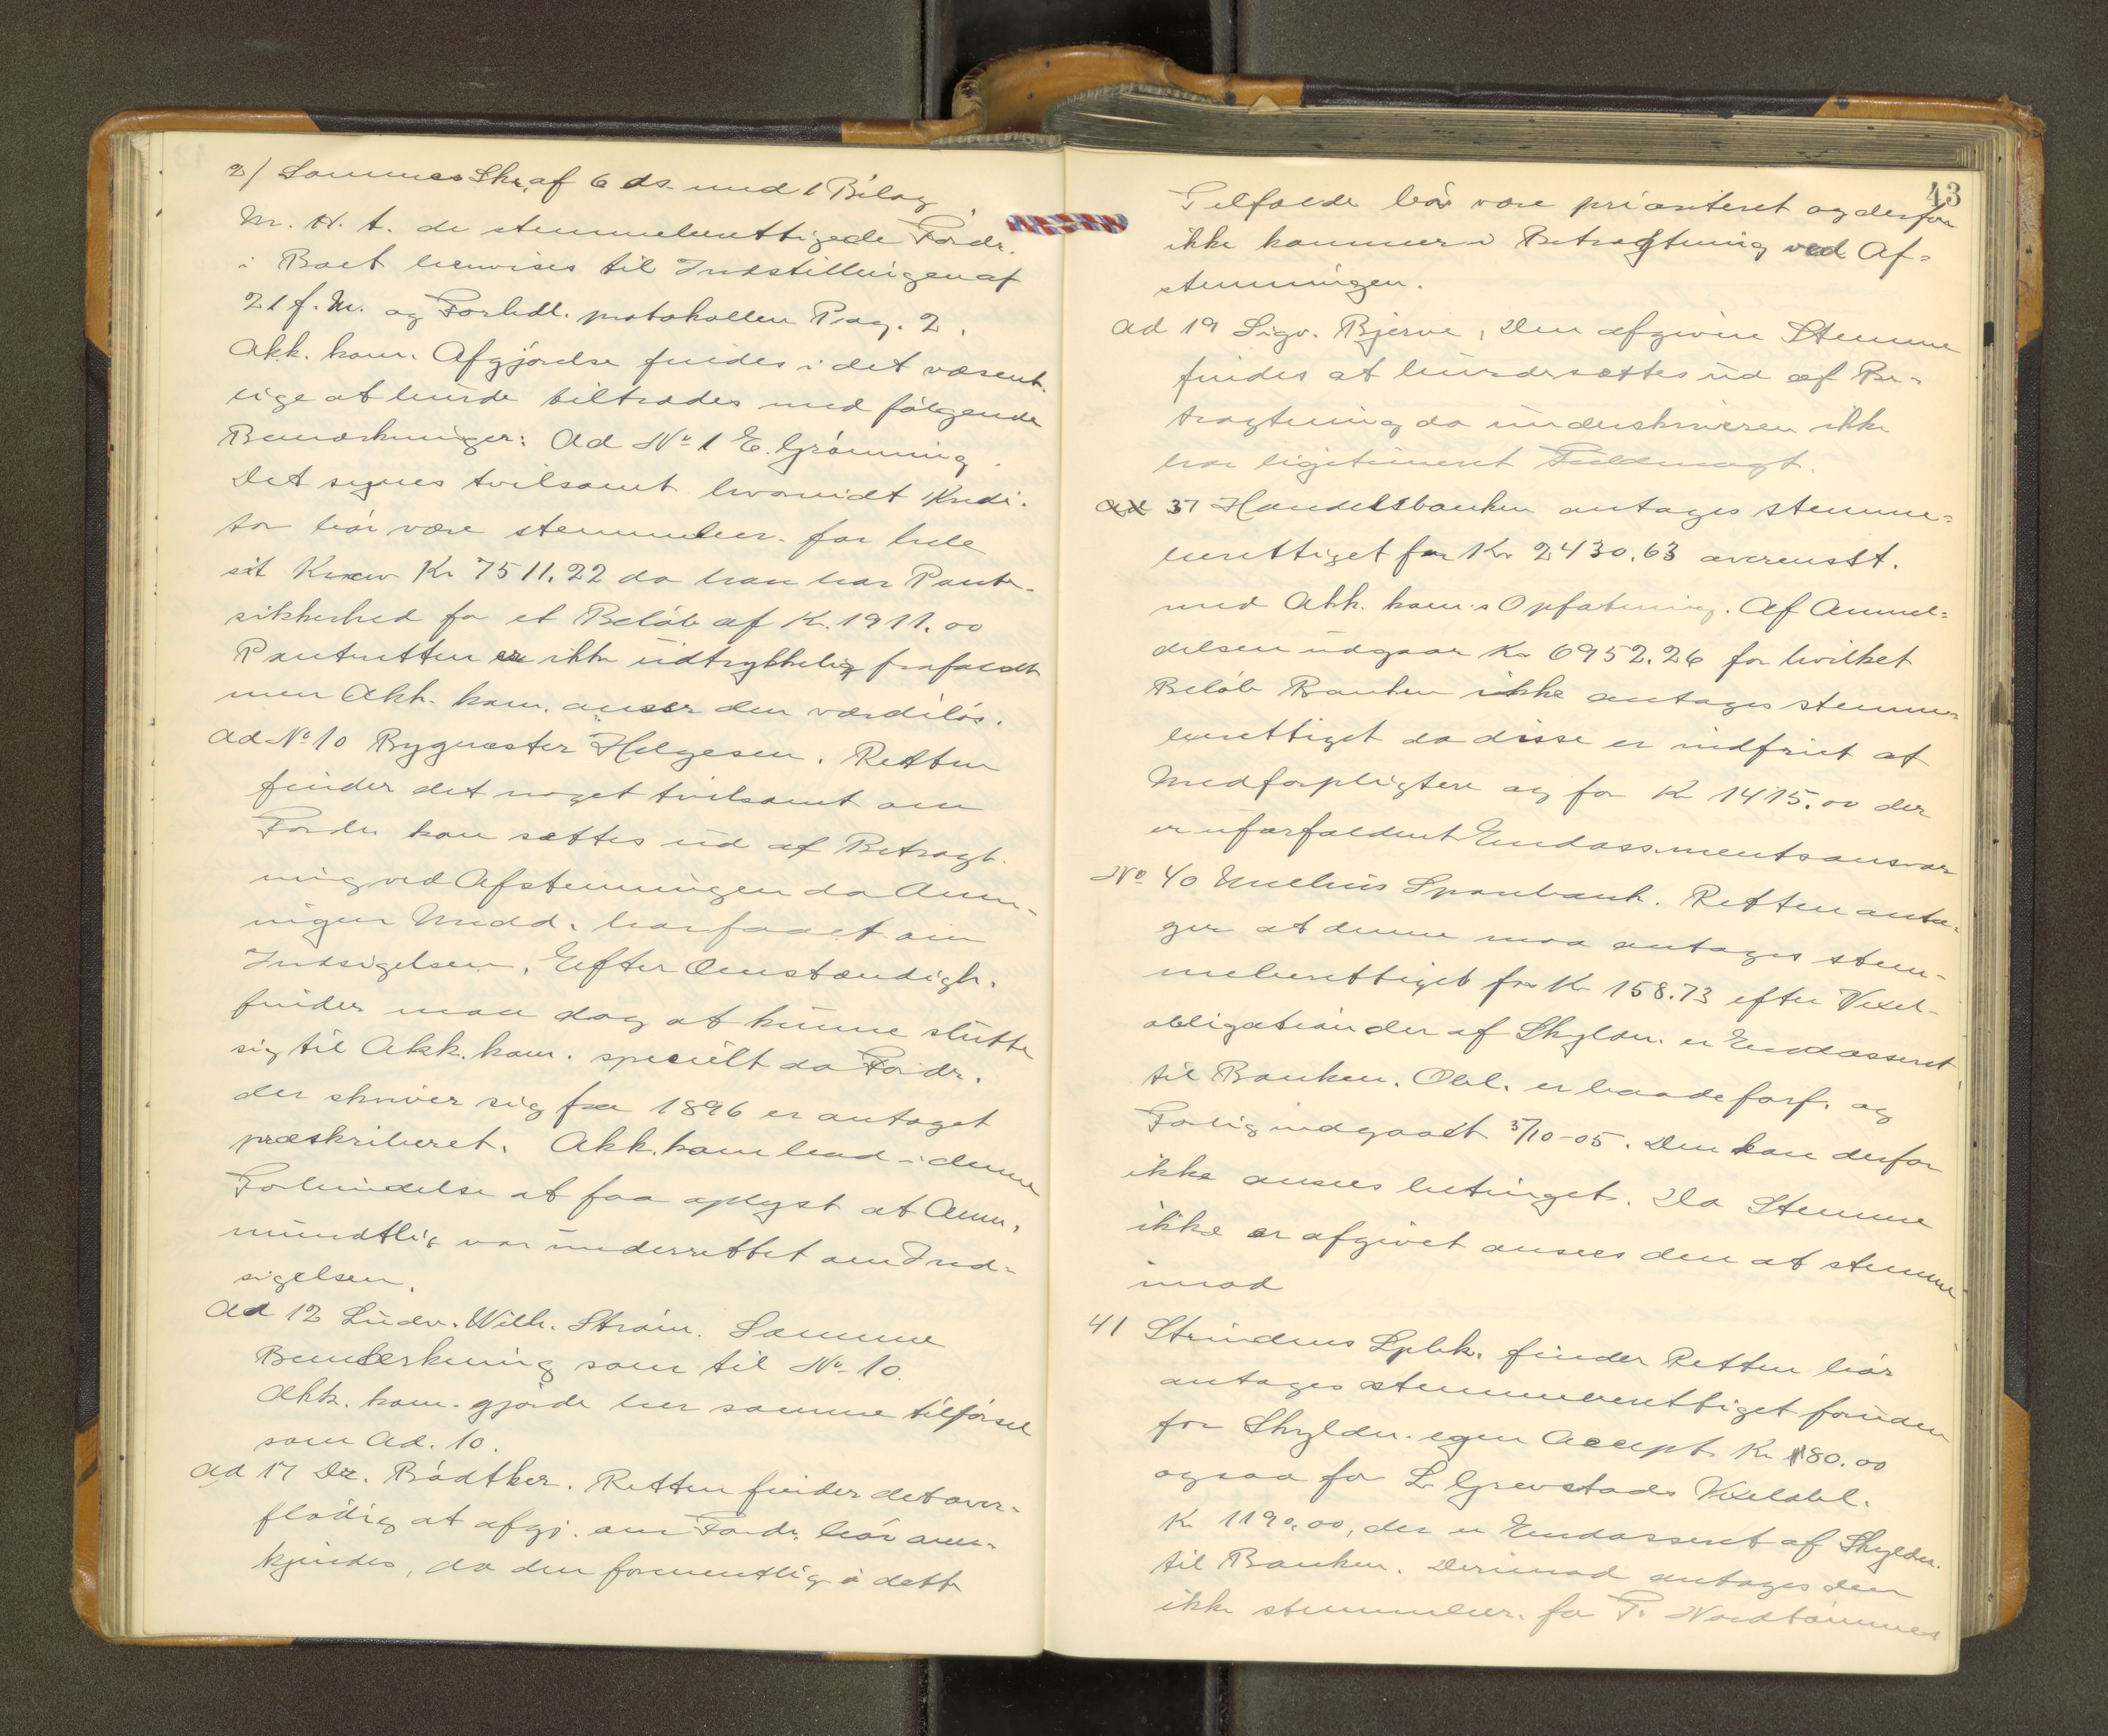 2/ Sammes Skr. af 6 ds. med 1 Bilag.
M. H. t. de stemmeberettigede Fordr.
i Boet henvises til Indstillingen af
21 f. M. og Forhdl. protokollen Pag. 2.
Akk. kom. Afgjørelse findes i det væsent-
lige at burde tiltrædes med følgende
Bemærkninger: Ad No 1 E. Grønning.
Det synes tvilsomt hvorvidt Kredi-
tor bør være stemmeber. for hele
sit Krav Kr 7511.22 da han har Pante-
sikkerhed for et Beløb af Kr. 1911.00
Panteretten er ikke udtrykkelig frafaldt
men Akk. kom. anser den værdiløs.
Ad No 10 Bygmester Helgesen. Retten
finder det noget tvilsomt om
Fordr. kan sættes ud af Betragt-
ning ved Afstemningen da Anm-
ingen Medd. har faaet om
Indsigelsen. Efter Omstændigh.
finder man dog at kunne slutte
sig til Akk. kom. specielt da Fordr.
der skriver sig fra 1896 er antaget
præskriberet. Akk. kom bad i denne
Forbindelse at faa oplyst at Anm.
mundtlig var underrettet om Ind-
sigelsen.
Ad 12 Ludv. Wilh. Strøm. Samme
Bemærkning som til No 10.
Akk. kom. gjorde her samme tilførsel
som Ad. 10.
Ad 17 Dr. Bødtker. Retten finder det over-
flødig at afgj. om Fordr. bør aner-
kjendes, da den formentlig i dette
43
Tilfælde bør være prioriteret og derfor
ikke kommer i Betragtning ved Af-
stemningen.
Ad 19 Sigv. Bjerve, Den afgivne Stemme
findes at burde sættes ud af Be-
tragtning da underskriveren ikke
har ligetimeret Fuldmagt.
Ad 37 Handelsbanken antages stemme-
berettiget for Kr. 2430.63 overenstt.
med Akk. kom.s Opfatning. Af Anmel-
delsen udgaar Kr 6952.26 for hvilket
Beløb Banken ikke antages stemme-
berettiget da disse er indfriet af
Medforpligtere og for Kr 1415.00 der
er uforfaldent Endossementsansvar
No 40 Melhus Sparebank. Retten anta-
ger at denne maa antages stem-
meberettiget for Kr 158.73 efter Vexel-
obligation der af Skyldn. er Endosseret
til Banken. Obl. er baade forf. og
Forlig indgaaet 3/10-05. Den kan derfor
ikke ansees betinget. Da Stemme
ikke er afgivet ansees den at stemme
imod
41 Strindens Spbk. finder Retten bør
antages stemmeberettiget foruden
for Skyldn. egen Accept Kr 180.00
ogsaa for L. Grevstads Vexelobl.
Kr 1190.00, der er Endosseret af Skyldn.
til Banken. Derimod antages den
ikke stemmeber. for P. Nordtømmes